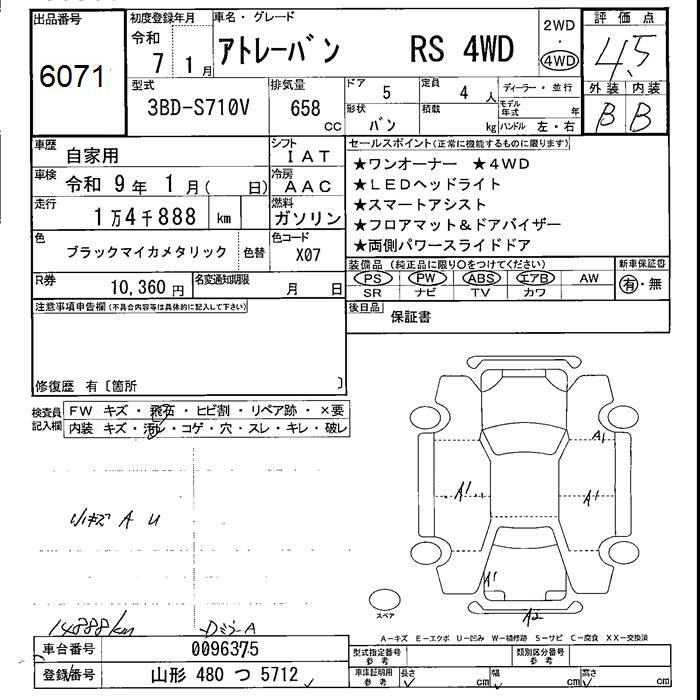 出品番号
6071
初度登録年月
令和 7 1月
車名・グレード
アトレーバン RS 4WD
2WD
4WD
評価点
4.5
外装 内装
B B
型式
3BD-S710V
排気量
658
cc
ドア
5
定員
4 人
ディーラー・並行
形状
バン
積載
kg
モデル年式 年
ハンドル 左・右
車歴
自家用
シフト
IAT
車検
令和 9年 1月( 日)
冷房
AAC
走行
1万4千888 km
燃料
ガソリン
色
ブラックマイカメタリック
色替
色コード
X07
R券
10,360 円
名変通知期限
月 日
セールスポイント(正常に機能するものに限ります)
★ワンオーナー ★4WD
★LEDヘッドライト
★スマートアシスト
★フロアマット&ドアバイザー
★両側パワースライドドア
装備品(純正品に限り○をつけてください)
新車保証書
PS PW ABS エアB AW
SR ナビ TV カワ
有・無
後日品
保証書
注意事項申告欄(不具合内容等は具体的に記入して下さい)
修復歴 有〔箇所 〕
検査員記入欄
FW キズ・飛石・ヒビ割・リペア跡・×要
内装 キズ・汚レ・コゲ・穴・スレ・キレ・破レ
小キズ A U
A1
A1
A1
A1
A2
スペア
14888km
A
A-キズ E-エクボ U-凹み W-補修跡 S-サビ C-腐食 XX-交換済
車台番号
0096375
登録番号
山形 480 つ 5712
型式指定番号
参考
類別区分番号
参考
車庫証明用
参考
長さ cm
幅 cm
高さ cm